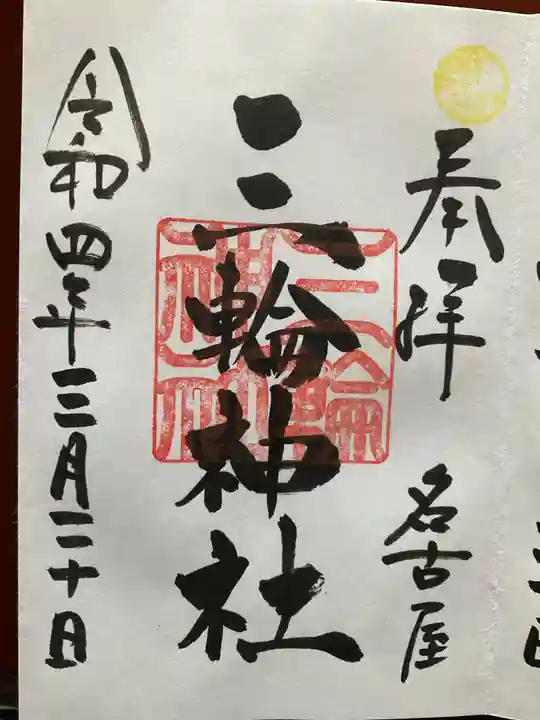 奉拝 名古屋
三輪神社
三輪神社
令和四年三月二十日